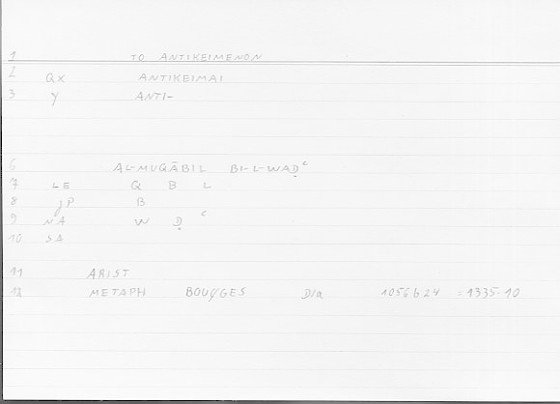 1 TO ANTIKEIMENON
2 QX ANTIKEIMAI
3 Y ANTI-
6 AL-MUQĀBIL BI-L-WAḌʿ
7 LE Q B L
8 JP B
9 NA W Ḍ ʿ
10 SA
11 ARIST
12 METAPH BOUYGES D/a 1056b24 :1335.10